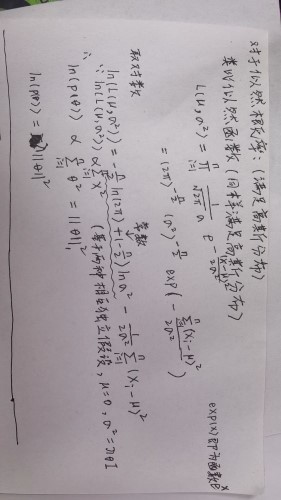 对于似然概率：(满足高斯分布)
类似似然函数 (同样满足高斯分布)
L(μ, σ²) = ∏ᵢ₌₁ⁿ 1/(√2π σ) e^(-(xᵢ-μ)²/2σ²)
= (2π)^(-n/2) (σ²)^(-n/2) exp(- Σᵢ₌₁ⁿ(xᵢ-μ)²/2σ²)
exp(x)即为函数eˣ
取对数
常数
ln(L(μ, σ²)) = -n/2 ln(2π) + (-n/2) ln σ² - 1/2σ² Σᵢ₌₁ⁿ (xᵢ-μ)²
∵ ln L(μ, σ²) ∝ Σᵢ₌₁ⁿ x² (基于两种相互独立假设, μ=0, σ²=πθI
∴ ln(p(θ)) ∝ Σᵢ₌₁ⁿ θ² = ||θ||²
ln(p(θ)) = ||θ||²